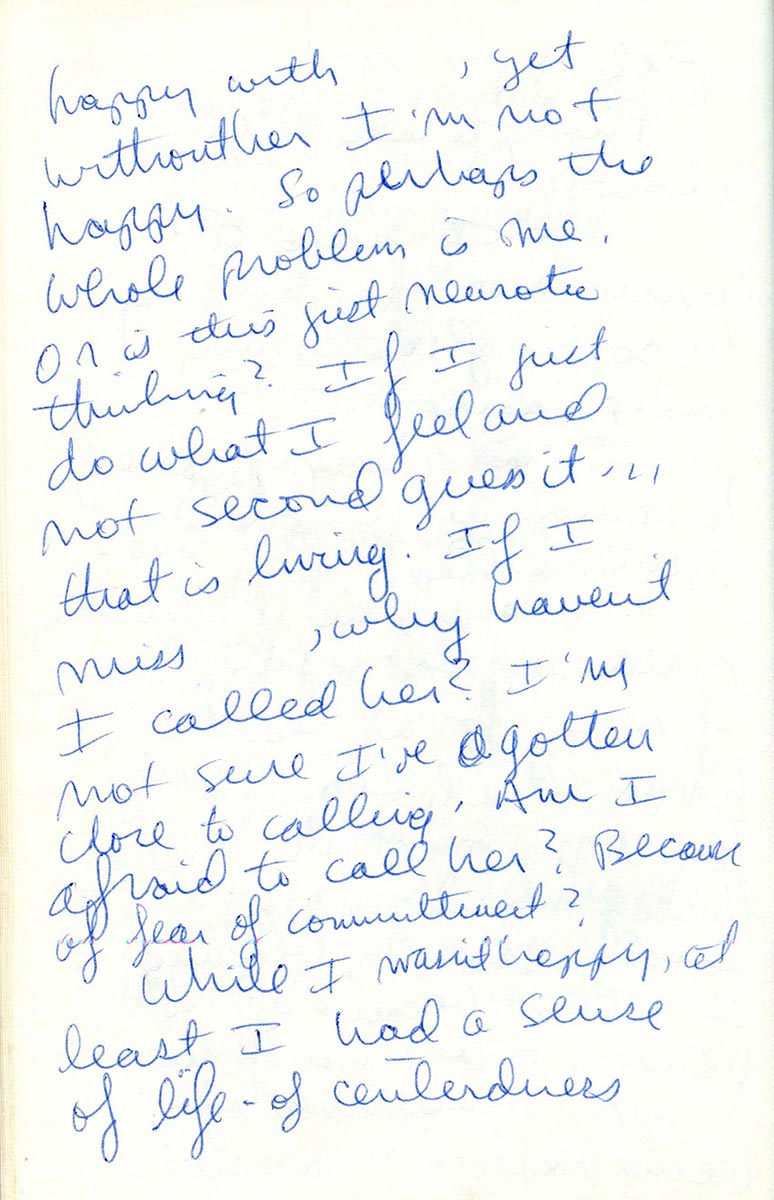 happy with , yet
without her I'm not
happy. So perhaps the
whole problem is me.
Or is this just neurotic
thinking? If I just
do what I feel and
not second guess it...
that is living. If I
miss , why haven't
I called her? I'm
not sure I've gotten
close to calling. Am I
afraid to call her? Because
of fear of committment?
While I wasn't happy, at
least I had a sense
of life - of centerdness